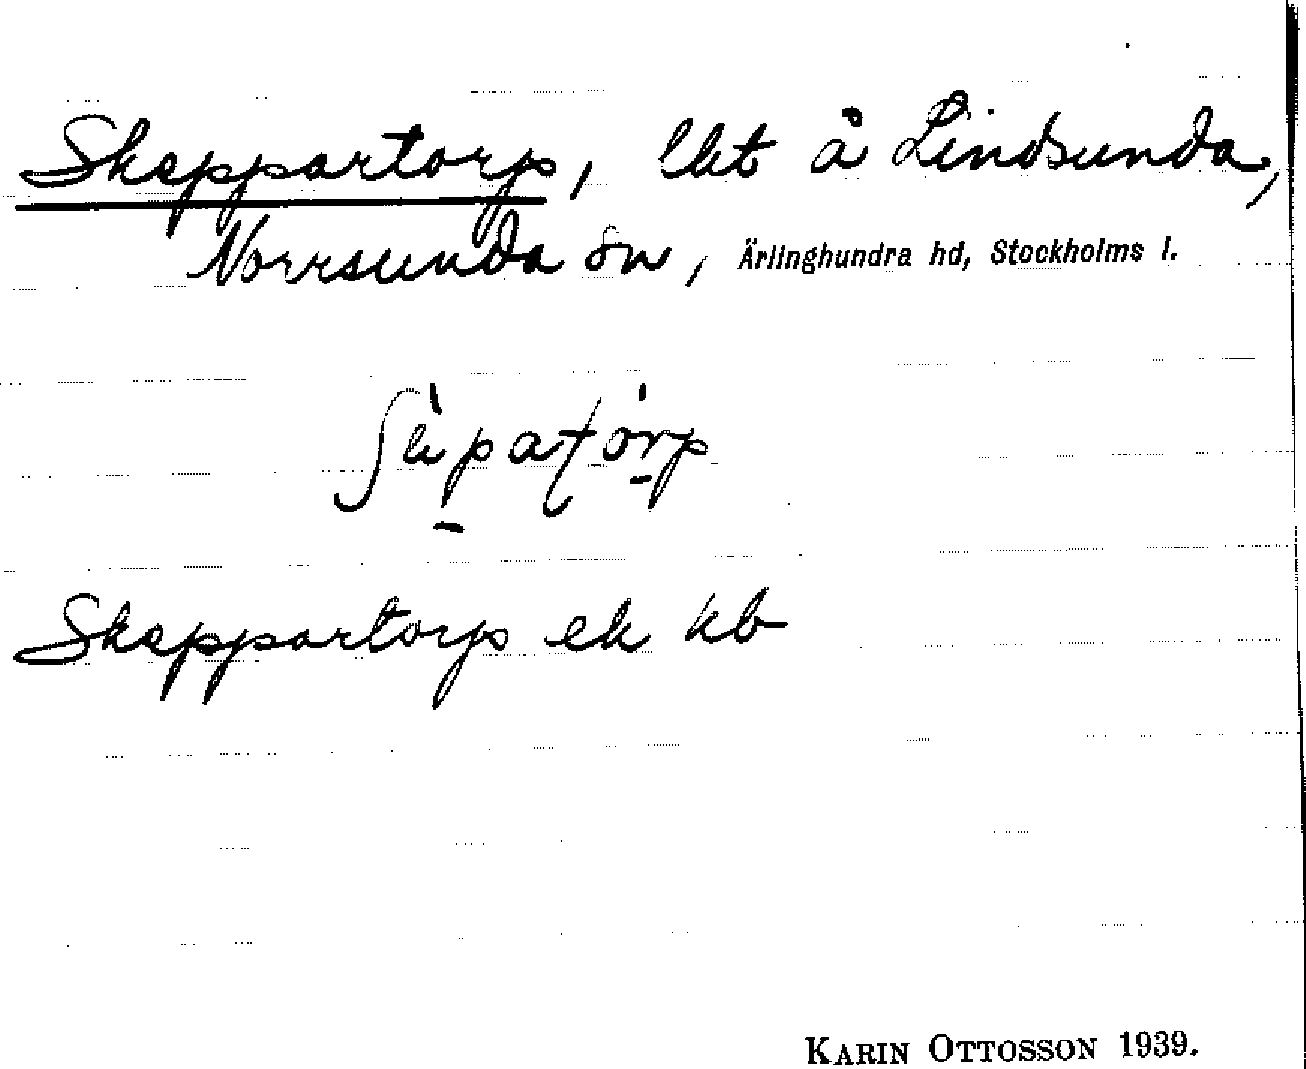 Skeppartorp, lht å Lindsunda,
Norrsunda sn, Ärlinghundra hd, Stockholms l.
Skeppartorp ek kb
KARIN OTTOSSON 1939.